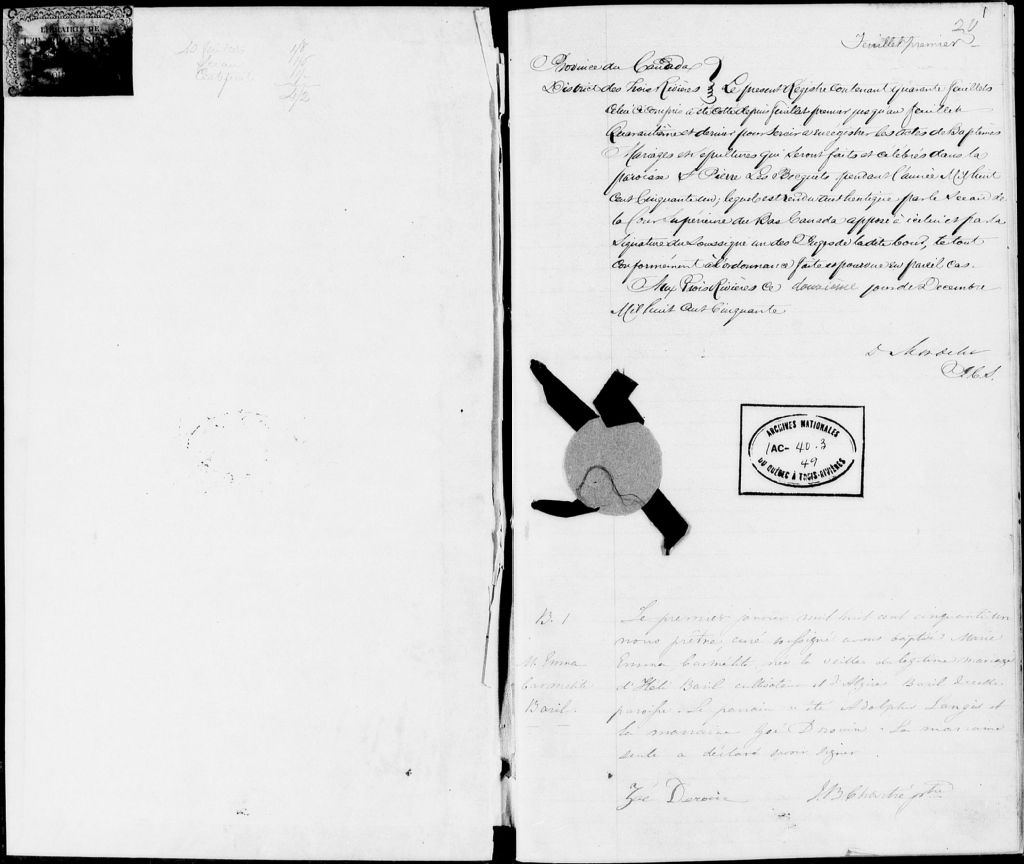 LIBRAIRIE DE
40 feuillets 1/8
Sceau 1/6
Certificat
4/2
1
20
Feuillet premier
Province du Canada
District des Trois Rivières } Le présent Régistre contenant quarante feuillets
celui ci compris a été cotté depuis feuillet premier jusqu'au feuillet
Quarantième et dernier pour servir à enregistrer les actes de Baptêmes
Mariages et Sépultures qui seront faits et célébrés dans la
paroisse St Pierre Les Becquets pendant l'année Mil huit
cent Cinquante un, lequel est rendu authentique par le Sceau de
la Cour Supérieure du Bas Canada apposé à icelui et par la
Signature du Soussigné un des Juges de la dite Cour, le tout
conformément à l'ordonnance faite et pourvue en pareil cas.
Aux Trois Rivières ce douzième jour de Décembre
Mil huit cent Cinquante
D Mondelet
J.C.S.
ARCHIVES NATIONALES
AC- 40.3
49
DU QUÉBEC À TROIS-RIVIÈRES
B. 1
M. Emma
Carmélite
Baril
Le premier janvier mil huit cent cinquante un
nous prêtre curé soussigné avons baptisé Marie
Emma Carmélite née la veille du légitime mariage
d'Héli Baril cultivateur et d'Alzire Baril de cette
paroisse. Le parrain a été Adolphe Langis et
la marraine Zoé Drouin. La marraine
seule a déclaré savoir signer
Zoé Derouin J.B Chartré ptre